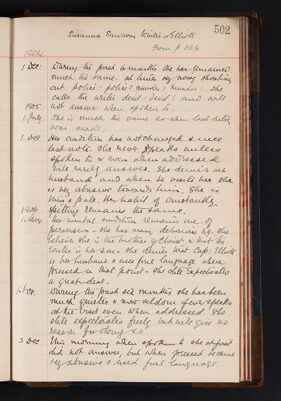 502
Susanna Ransom Winter
from p 366
1 Dec: During the past 6 months she has remained
much the same. at times very noisy shouting
out police! police! murder! murder! She
calls the writer devil! devil! and will
1905 not answer when spoken to.
1 July. She is much the same as when last note
was made.
1. Dec. Her condition has not changed since
last note. She never speaks unless
spoken to & even when addressed
will rarely answer. She denies her
husband and when he visits her she
is very abusive towards him. She is
thin & pale. Her habit of constantly
spitting remains the same.
1906
Her mental condition remains one of
she has many delusions e.g. she
believes she is the mother of Christ & that the
writer is her son - she denies that
is her husband & uses foul language when
pressed on that point - She still expectorates
a great deal.
1. Nov. During the past six months she has been
much quieter & now seldom if ever speaks
at the visit even when addressed. She
still expectorates freely but will give no
reason for doing so
3 Dec This morning when spoken to she at first
did not answer, but when pressed became
very abusive & used foul language.